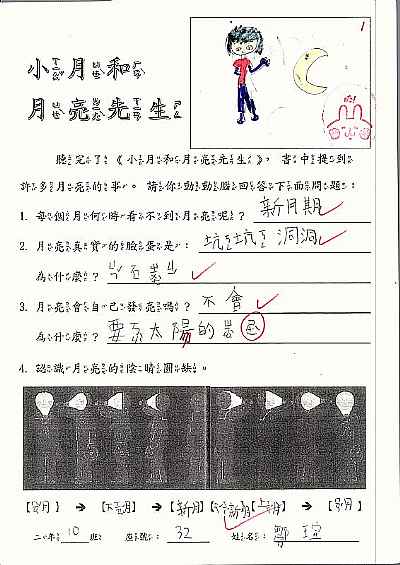 小月和
月亮先生
1
聽完了《小月和月亮先生》，書中提到
許多月亮的事。請你動動腦回答下面問題：
1. 每個月何時看不到月亮呢？新月期
2. 月亮真實的臉蛋是：坑坑洞洞
為什麼？
3. 月亮會自己發亮嗎？不會
為什麼？要 太陽的
4. 認識月亮的陰晴圓缺。
【 月】→【 月】→【新月】【 】【上 月】→【 月】
二年 10 班 座號：32 姓名：鄭